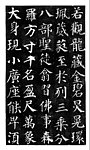 若觀龍藏金碧炅晃環
珮葳蕤至於列三乘分
八部聖徒翕習佛事森
羅方寸千名盈尺萬象
大身現小廣座能卑須